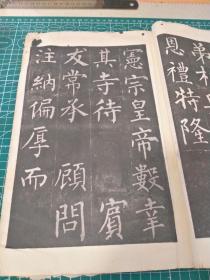 弟
恩禮特隆
憲宗皇帝數幸
其寺待賓
友常承顧問
注納偏厚而